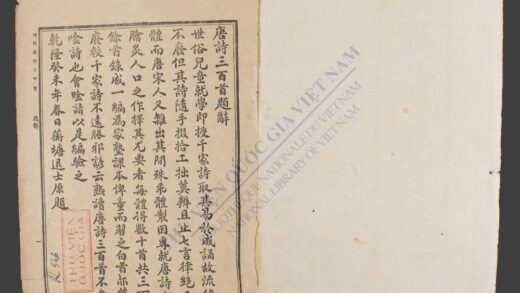 唐詩三百首題辭
世俗兒童就學即授千家詩取其易於成誦故流
不廢但其詩隨手掇拾工拙莫辨且止七言律絕
體而唐宋人又雜出其間殊乖體製因專就唐詩
膾炙人口之作擇其尤要者每體得數十首共三
餘首錄成一編為家塾課本俾童而習之白首亦
廢較千家詩不遠勝耶諺云熟讀唐詩三百首不
吟詩也會吟請以是編驗之
乾隆癸未年春日蘅塘退士原題
THƯ VIỆN
QUỐC GIA
THƯ VIỆN QUỐC GIA VIỆT NAM
BIBLIOTHÈQUE NATIONALE DU VIETNAM
NATIONAL LIBRARY OF VIETNAM